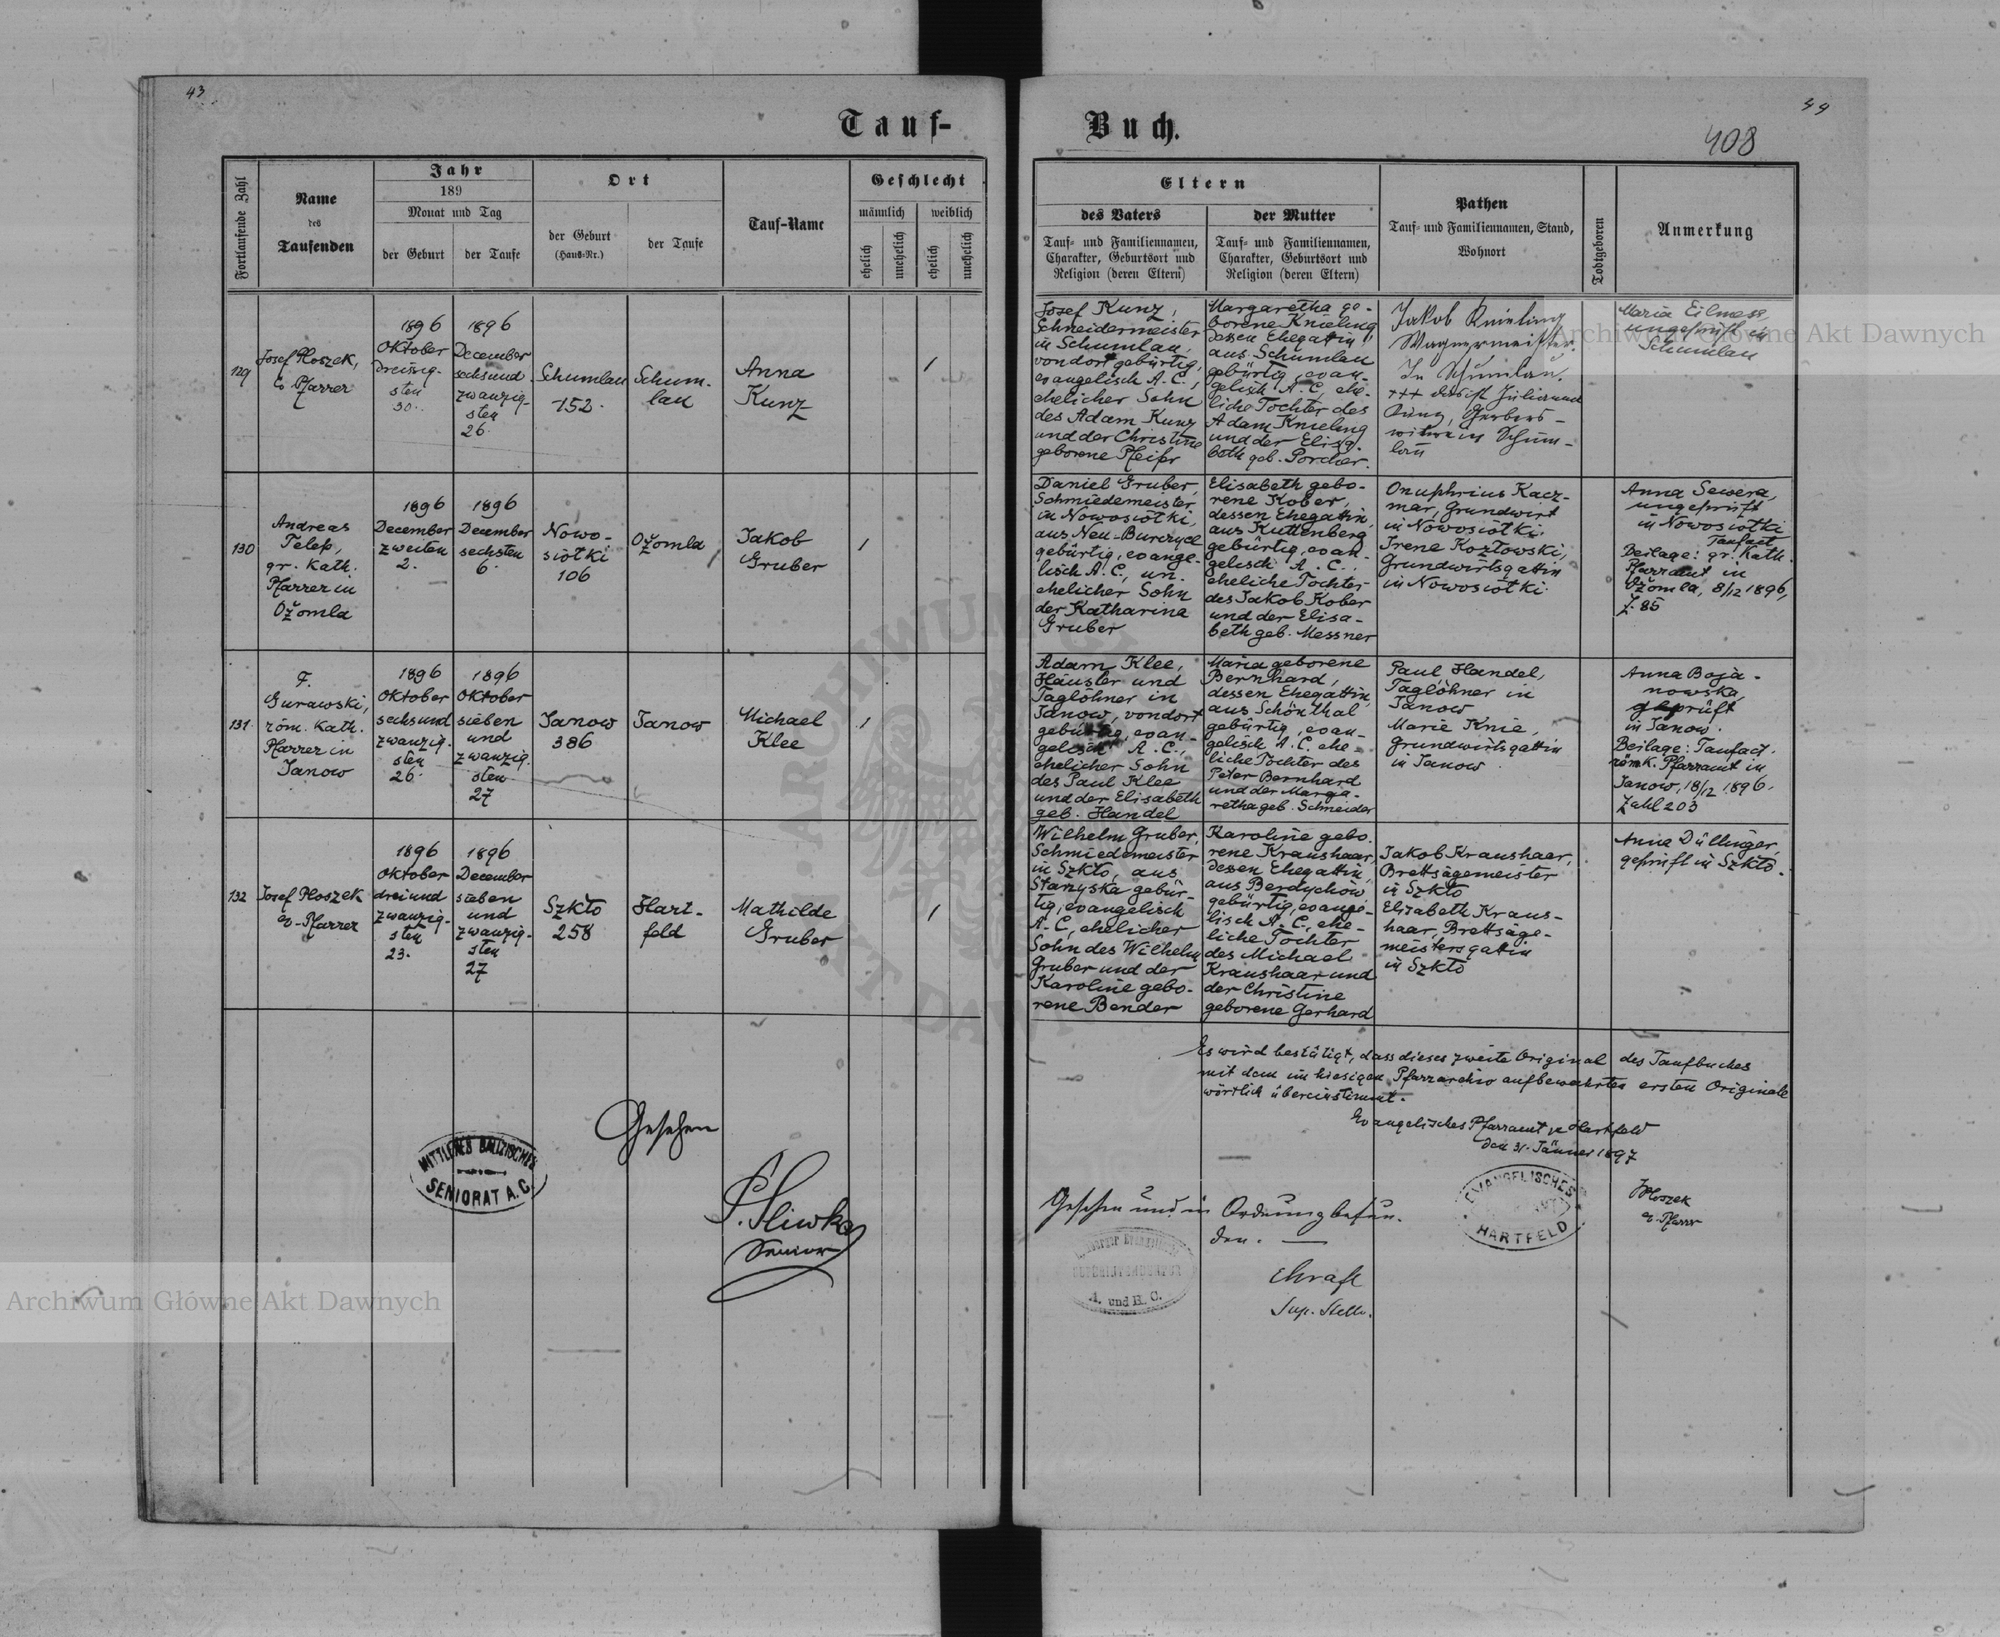 43
44
408
Tauf-
Buch.
Fortlaufende Zahl
Name
des
Taufenden
Jahr
189
Monat und Tag
der Geburt
der Taufe
Ort
der Geburt
(Haus-Nr.)
der Taufe
Tauf-Name
Geschlecht
männlich
weiblich
ehelich
unehelich
ehelich
unehelich
Eltern
des Vaters
Tauf- und Familiennamen,
Charakter, Geburtsort und
Religion (deren Eltern)
der Mutter
Tauf- und Familiennamen,
Charakter, Geburtsort und
Religion (deren Eltern)
Pathen
Tauf- und Familiennamen, Stand,
Wohnort
Todtgeboren
Anmerkung
129
Josef Ploszek,
ev. Pfarrer
1896
Oktober
dreissig-
sten
30.
1896
December
sechsund
zwanzig-
sten
26.
Schumlau
152.
Schum-
lau
Anna
Kunz
1
Josef Kunz,
Schneidermeister
in Schumlau,
von dort gebürtig,
evangelisch A.C.,
ehelicher Sohn
des Adam Kunz
und der Christine
geborene Pfeifer
Margaretha ge-
borene Knieling
dessen Ehegattin,
aus Schumlau
gebürtig, evan-
gelisch A.C., ehe-
liche Tochter des
Adam Knieling
und der Elisa-
beth geb. Porcher.
Jakob Knieling
Wagnermeister.
In Schumlau.
+++ das ist Julianna
Kunz, Gerbers-
witwe in Schum-
lau
Maria Eilmess,
ungeprüft in
Schumlau
130
Andreas
Telep,
gr. kath.
Pfarrer in
Ožomla
1896
December
zweiten
2.
1896
December
sechsten
6.
Nowo-
siółki
106
Ožomla
Jakob
Gruber
1
Daniel Gruber,
Schmiedemeister
in Nowosiółki,
aus Neu-Burczyce
gebürtig, evange-
lisch A.C., un-
ehelicher Sohn
der Katharina
Gruber
Elisabeth gebo-
rene Kober,
dessen Ehegattin,
aus Kuttenberg
gebürtig, evan-
gelisch A.C.,
eheliche Tochter
des Jakob Kober
und der Elisa-
beth geb. Messner
Onuphrius Kacz-
mar, Grundwirt
in Nowosiółki.
Irene Kozłowski,
Grundwirtsgattin
in Nowosiółki.
Anna Sewera,
ungeprüft
in Nowosiółki
Taufact
Beilage: gr. kath.
Pfarramt in
Ožomla, 8/12 1896,
Z. 85
131.
F.
Gurawski,
röm. kath.
Pfarrer in
Janow
1896
Oktober
sechsund
zwanzig-
sten
26.
1896
Oktober
sieben
und
zwanzig-
sten
27
Janow
386
Janow
Michael
Klee
1
Adam Klee,
Häusler und
Taglöhner in
Janow, von dort
gebürtig, evan-
gelisch A.C.,
ehelicher Sohn
des Paul Klee
und der Elisabeth
geb. Handel
Maria geborene
Bernhard,
dessen Ehegattin,
aus Schönthal
gebürtig, evan-
gelisch A.C. ehe-
liche Tochter des
Peter Bernhard
und der Marga-
retha geb. Schneider
Paul Handel,
Taglöhner in
Janow
Marie Knie,
Grundwirtsgattin
in Janow
Anna Boja-
nowska,
geprüft
in Janow.
Beilage: Taufact.
röm k. Pfarramt in
Janow, 18/12 1896.
Zahl 203
132
Josef Ploszek
ev. Pfarrer
1896
Oktober
dreiund
zwanzig-
sten
23.
1896
December
sieben
und
zwanzig-
sten
27
Szkło
258
Hart-
feld
Mathilde
Gruber
1
Wilhelm Gruber,
Schmiedemeister
in Szkło, aus
Starzyska gebür-
tig, evangelisch
A.C., ehelicher
Sohn des Wilhelm
Gruber und der
Karoline gebo-
rene Bender
Karoline gebo-
rene Kraushaar,
dessen Ehegattin,
aus Berdychow
gebürtig, evange-
lisch A.C., ehe-
liche Tochter
des Michael
Kraushaar und
der Christine
geborene Gerhard
Jakob Kraushaar,
Brettsägemeister
in Szkło
Elisabeth Kraus-
haar, Brettsäge-
meistersgattin
in Szkło
Anna Düllinger,
geprüft in Szkło.
Es wird bestätigt, dass dieses zweite Original des Taufbuches
mit dem im hiesigen Pfarrarchiv aufbewahrten ersten Originale
wörtlich übereinstimmt.
Evangelisches Pfarramt zu Hartfeld
den 31. Jänner 1897
JPloszek
ev. Pfarrer
EVANGELISCHES
HARTFELD
Gesehen
MITTLERES GALIZISCHES
SENIORAT A.C.
Senior
Gesehen und in Ordnung befun-
den.
A. und H. C.
Sup. Stellv.
Archiwum Główne Akt Dawnych
Archiwum Główne Akt Dawnych